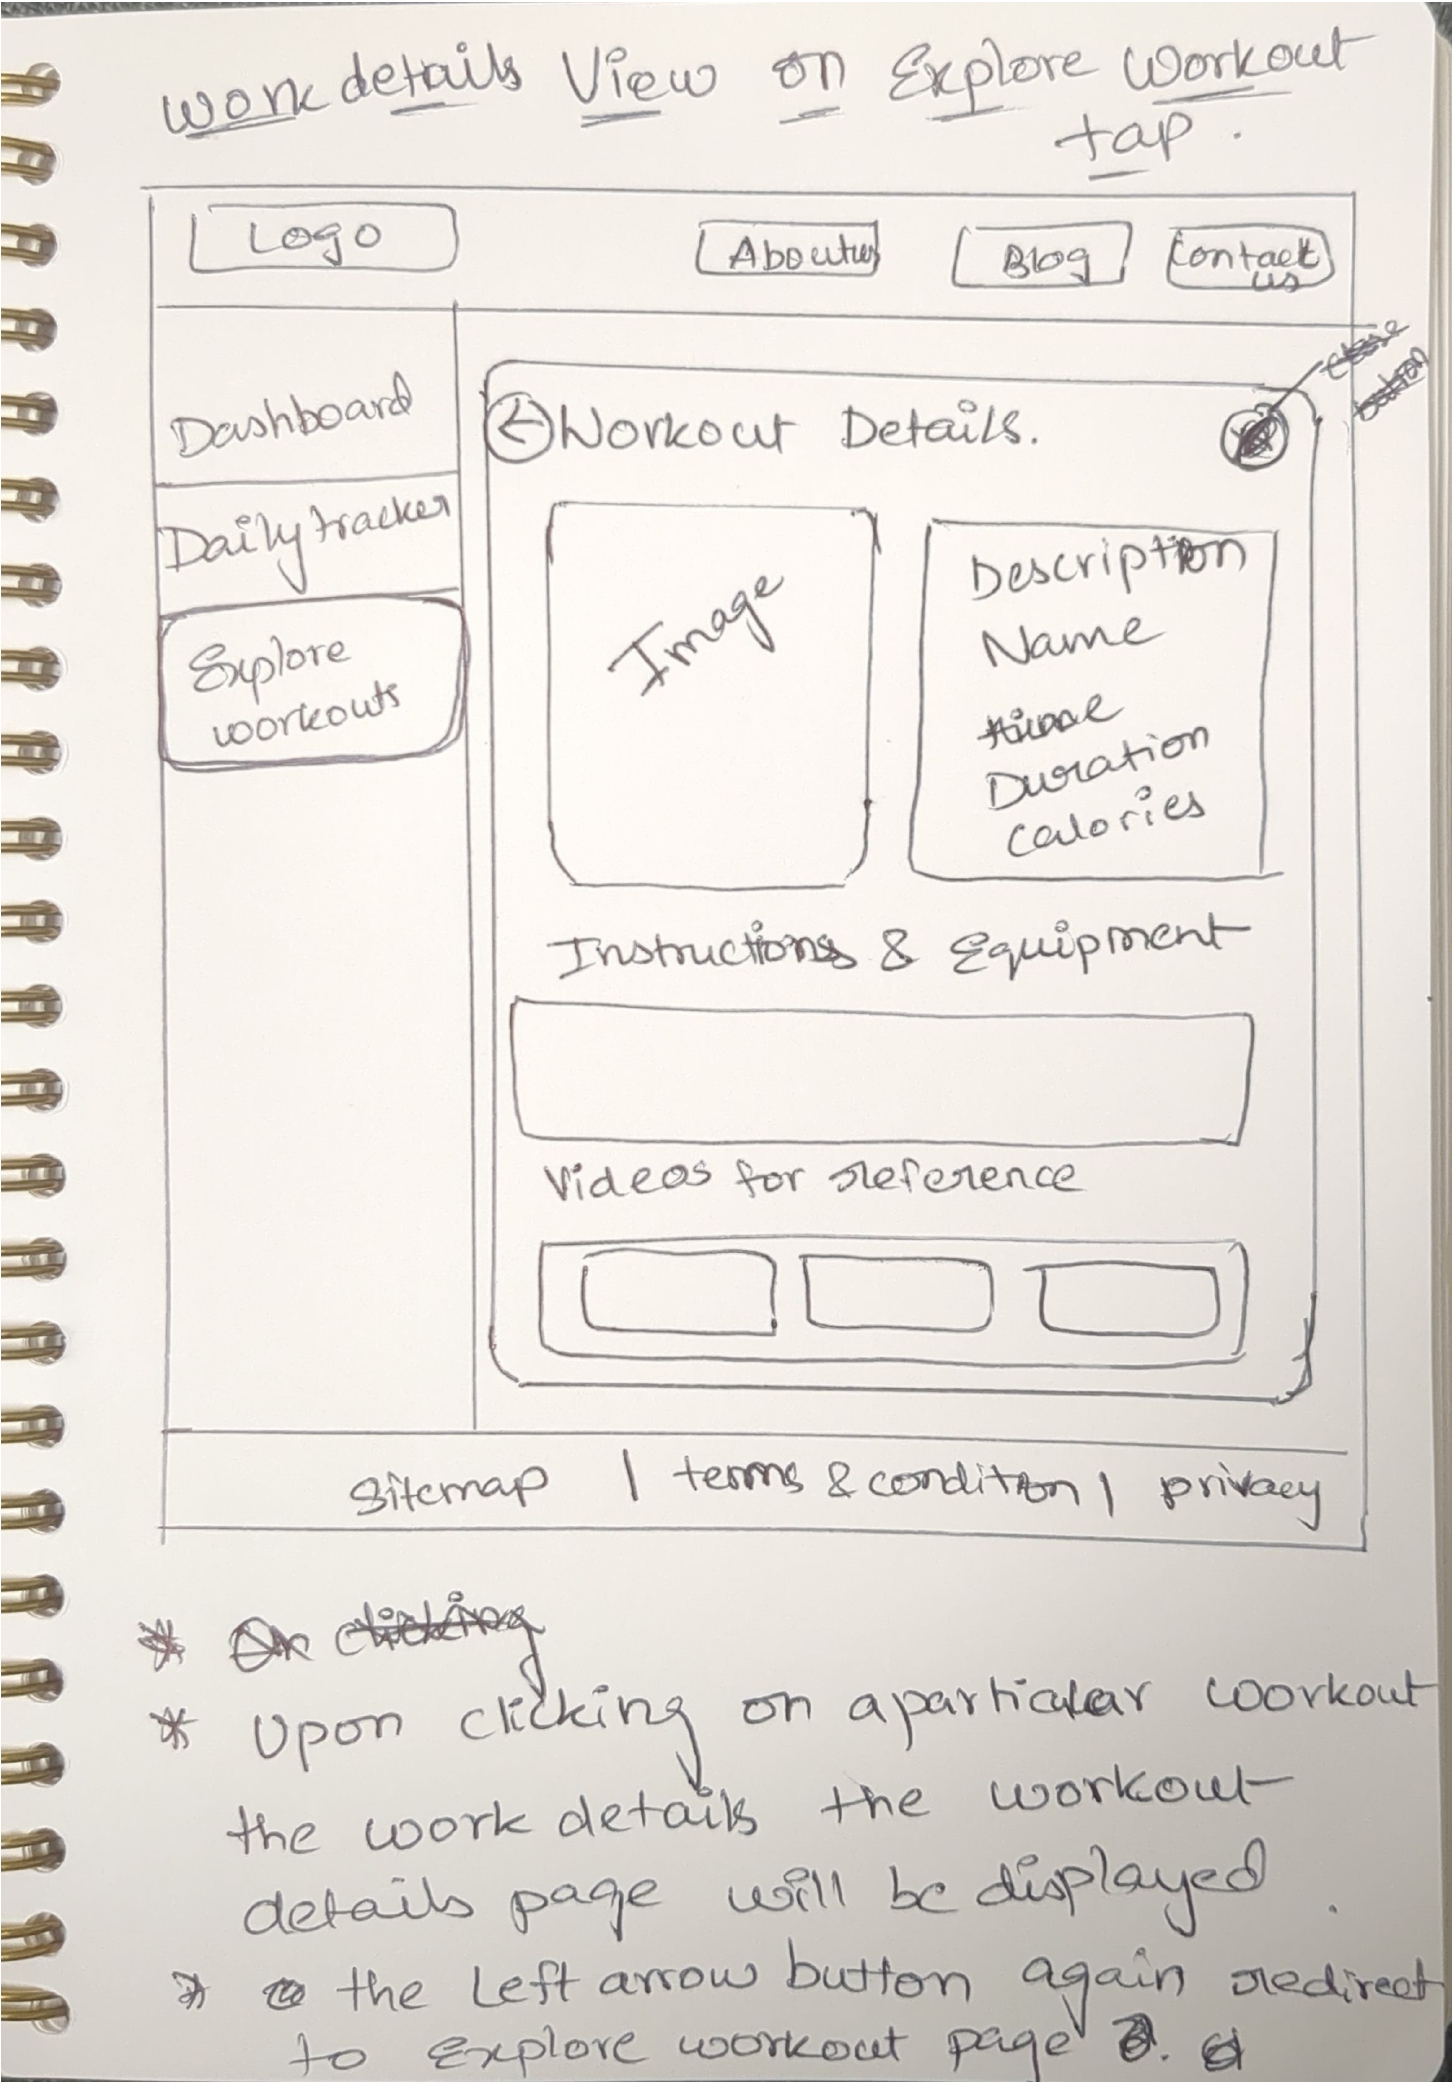 Work details View on Explore Workout
tap.
Logo
About us
Blog
Contact
us
close
button
Dashboard
Daily tracker
Explore
workouts
Workout Details.
Image
Description
Name
time
Duration
Calories
Instructions & Equipment
Videos for reference
Sitemap | terms & condition | privacy
* On clicking
* Upon clicking on a particular workout
the work details the workout
details page will be displayed.
* the Left arrow button again redirect
to Explore workout page